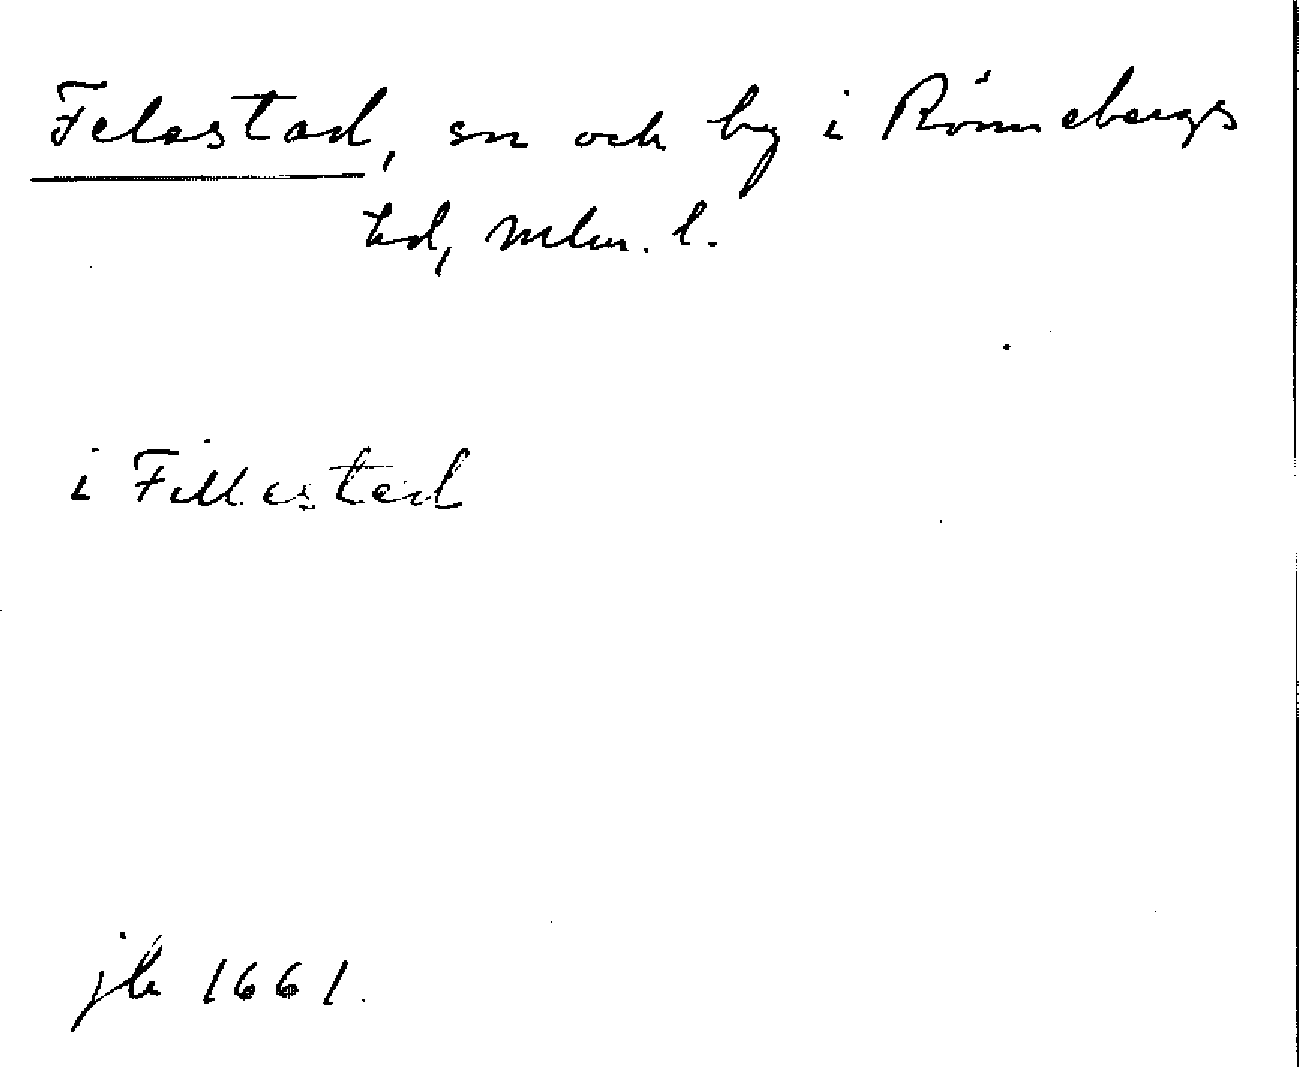 Felestad, sn och by i Rönnebergs
hd, Mlm. l.
i Fillested
jb 1661.